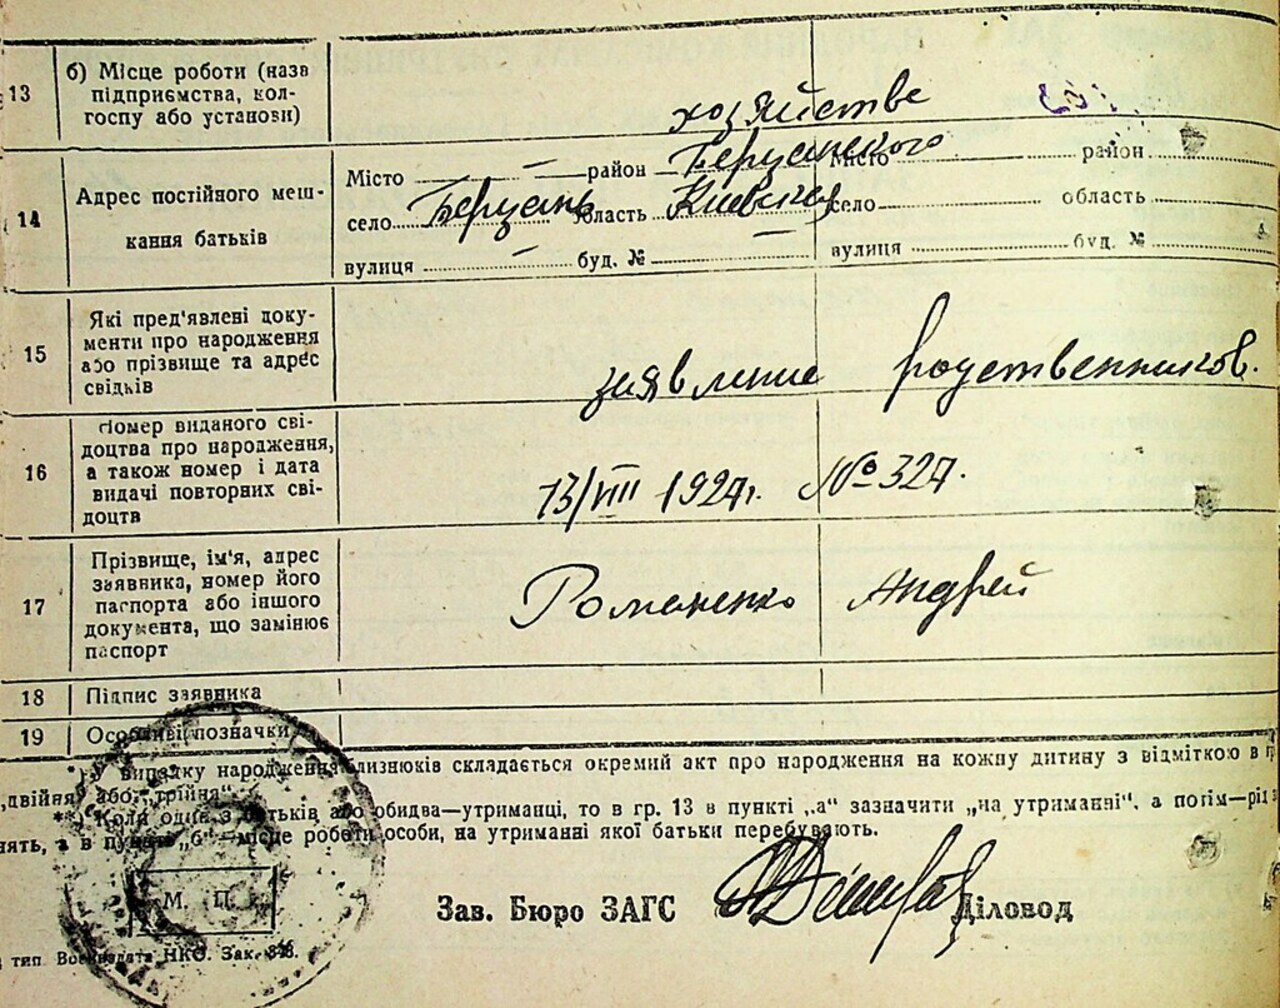 13
б) Місце роботи (назв
підприємства, кол-
госпу або установи)
хозяйстве
14
Адрес постійного меш-
кання батьків
Місто — район Березанского
село Березань область Киевская
вулиця — буд. № —
Місто район
село область
вулиця буд. №
15
Які пред'явлені доку-
менти про народження
або прізвище та адрес
свідків
заявление родственников.
16
Номер виданого сві-
доцтва про народження,
а також номер і дата
видачі повторних сві-
доцтв
13/VIII 1927г. № 327.
17
Прізвище, ім'я, адрес
заявника, номер його
паспорта або іншого
документа, що замінює
паспорт
Романенко Андрей
18
Підпис заявника
19
Особливі позначки
*) У випадку народження близнюків складається окремий акт про народження на кожну дитину з відміткою в гр
„двійня“ або „трійня“.
**) Коли один з батьків або обидва—утриманці, то в гр. 13 в пункті „а“ зазначити „на утриманні“, а потім—рід з
нять, а в пункті „б“—місце роботи особи, на утриманні якої батьки перебувають.
М. П.
Зав. Бюро ЗАГС
Діловод
тип. НКО. Зак.